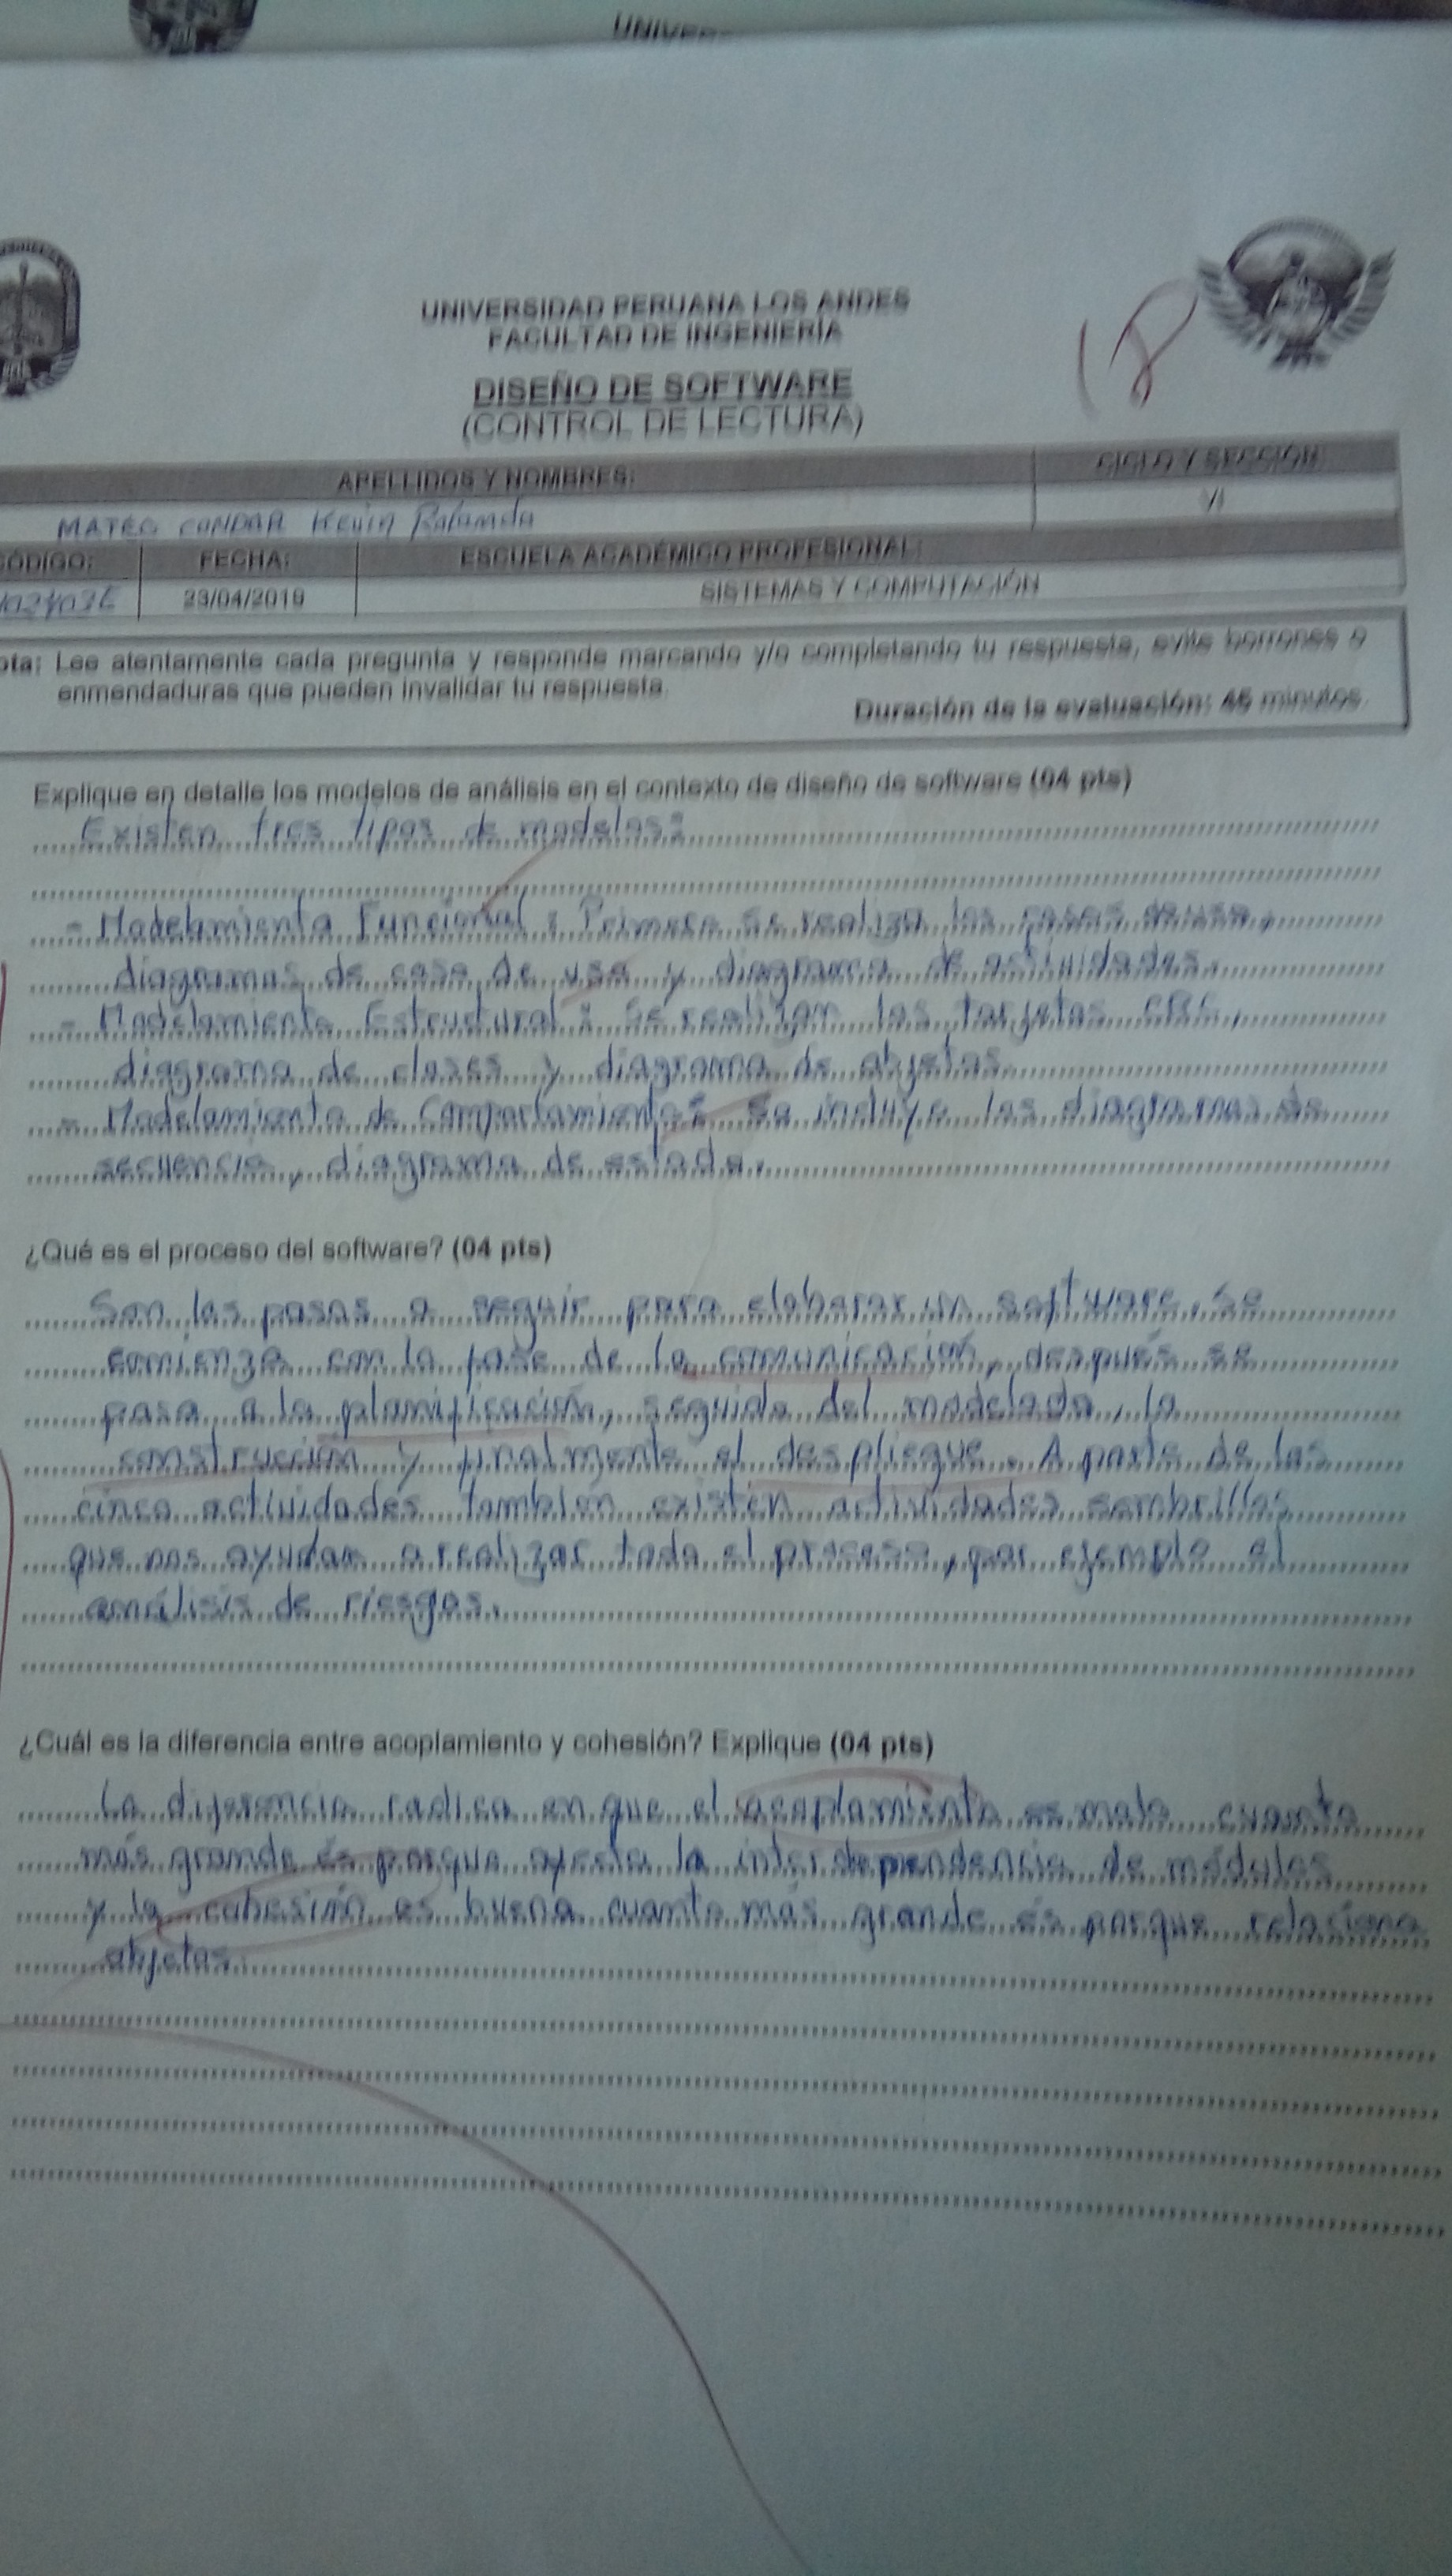 UNIVER
UNIVERSIDAD PERUANA LOS ANDES
FACULTAD DE INGENIERÍA
18
DISEÑO DE SOFTWARE
(CONTROL DE LECTURA)
APELLIDOS Y NOMBRES:
CICLO Y SECCIÓN
MATEO CONDOR Kevin Rolando
VI
CÓDIGO:
FECHA:
ESCUELA ACADÉMICO PROFESIONAL:
23/04/2019
SISTEMAS Y COMPUTACIÓN
ota: Lee atentamente cada pregunta y responde marcando y/o completando tu respuesta, evite borrones o
enmendaduras que pueden invalidar tu respuesta.
Duración de la evaluación: 45 minutos.
Explique en detalle los modelos de análisis en el contexto de diseño de software (04 pts)
Existen tres tipos de modelos:
- Modelamiento Funcional: Primero se realiza los casos de uso,
diagramas de caso de uso y diagrama de actividades.
- Modelamiento Estructural: Se realizan las tarjetas CRC,
diagrama de clases y diagrama de objetos.
- Modelamiento de Comportamiento: se incluye los diagramas de
secuencia, diagrama de estado.
¿Qué es el proceso del software? (04 pts)
Son los pasos a seguir para elaborar un software, se
comienza con la fase de la comunicación, después se
pasa a la planificación, seguido del modelado, la
construcción y finalmente el despliegue. A parte de las
cinco actividades también existen actividades sombrillas
que nos ayudan a realizar todo el proceso, por ejemplo el
análisis de riesgos.
¿Cuál es la diferencia entre acoplamiento y cohesión? Explique (04 pts)
La diferencia radica en que el acoplamiento es malo cuanto
más grande és porque afecta la interdependencia de módulos
y la cohesión es buena cuanto más grande és porque relaciona
objetos.